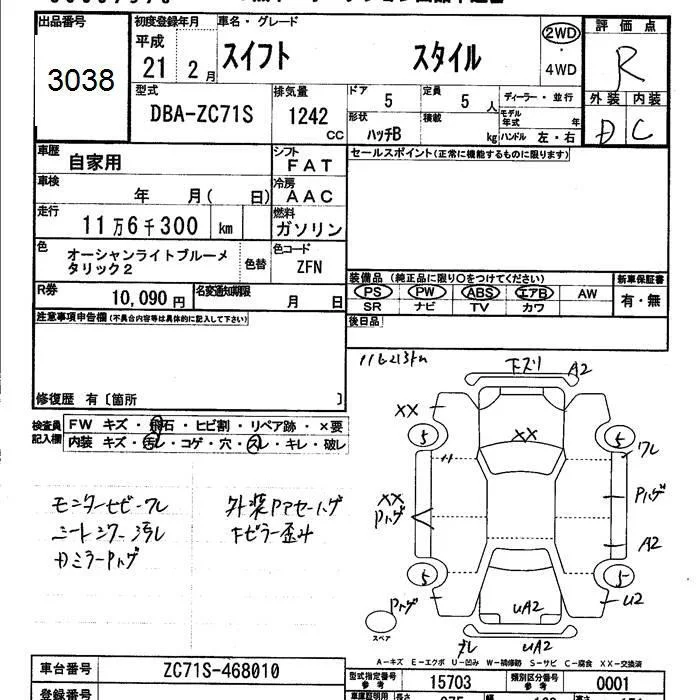 出品番号 初度登録年月 車名・グレード 評価点
3038
平成 21 2月 スイフト スタイル 2WD・4WD R
型式 排気量 ドア 定員 ディーラー・並行 外装 内装
DBA-ZC71S 1242cc 5 5人 モデル年式 年 D C
形状 ハッチB 積載 kg ハンドル 左・右
車歴 自家用 シフト FAT セールスポイント(正常に機能するものに限ります)
車検 年 月( 日) 冷房 AAC
走行 11万6千300 km 燃料 ガソリン
色 オーシャンライトブルーメタリック2 色替 色コード ZFN
装備品 (純正品に限り○をつけてください) 新車保証書
R券 10,090円 名変通知期限 月 日 PS PW ABS エアB AW 有・無
SR ナビ TV カワ
注意事項申告欄(不具合内容等は具体的に記入して下さい) 後日品
116213km
下ズリ A2
修復歴 有〔箇所 〕 XX
検査員記入欄 FW キズ・飛石・ヒビ割・リペア跡・×要 5 XX 5
内装 キズ・汚レ・コゲ・穴・スレ・キレ・破レ ワレ
モニターセビーワレ 外装Pアセーハゲ XX Pハゲ
シートシワー汚レ Fピラー歪み Pハゲ A2
DミラーPハゲ 5 5
Pハゲ UA2 U2
スペア UA2
A-キズ E-エクボ U-凹み W-補修跡 S-サビ C-腐食 XX-交換済
車台番号 ZC71S-468010
型式指定番号参考 15703 類別区分番号参考 0001
登録番号 長さ 幅 高さ